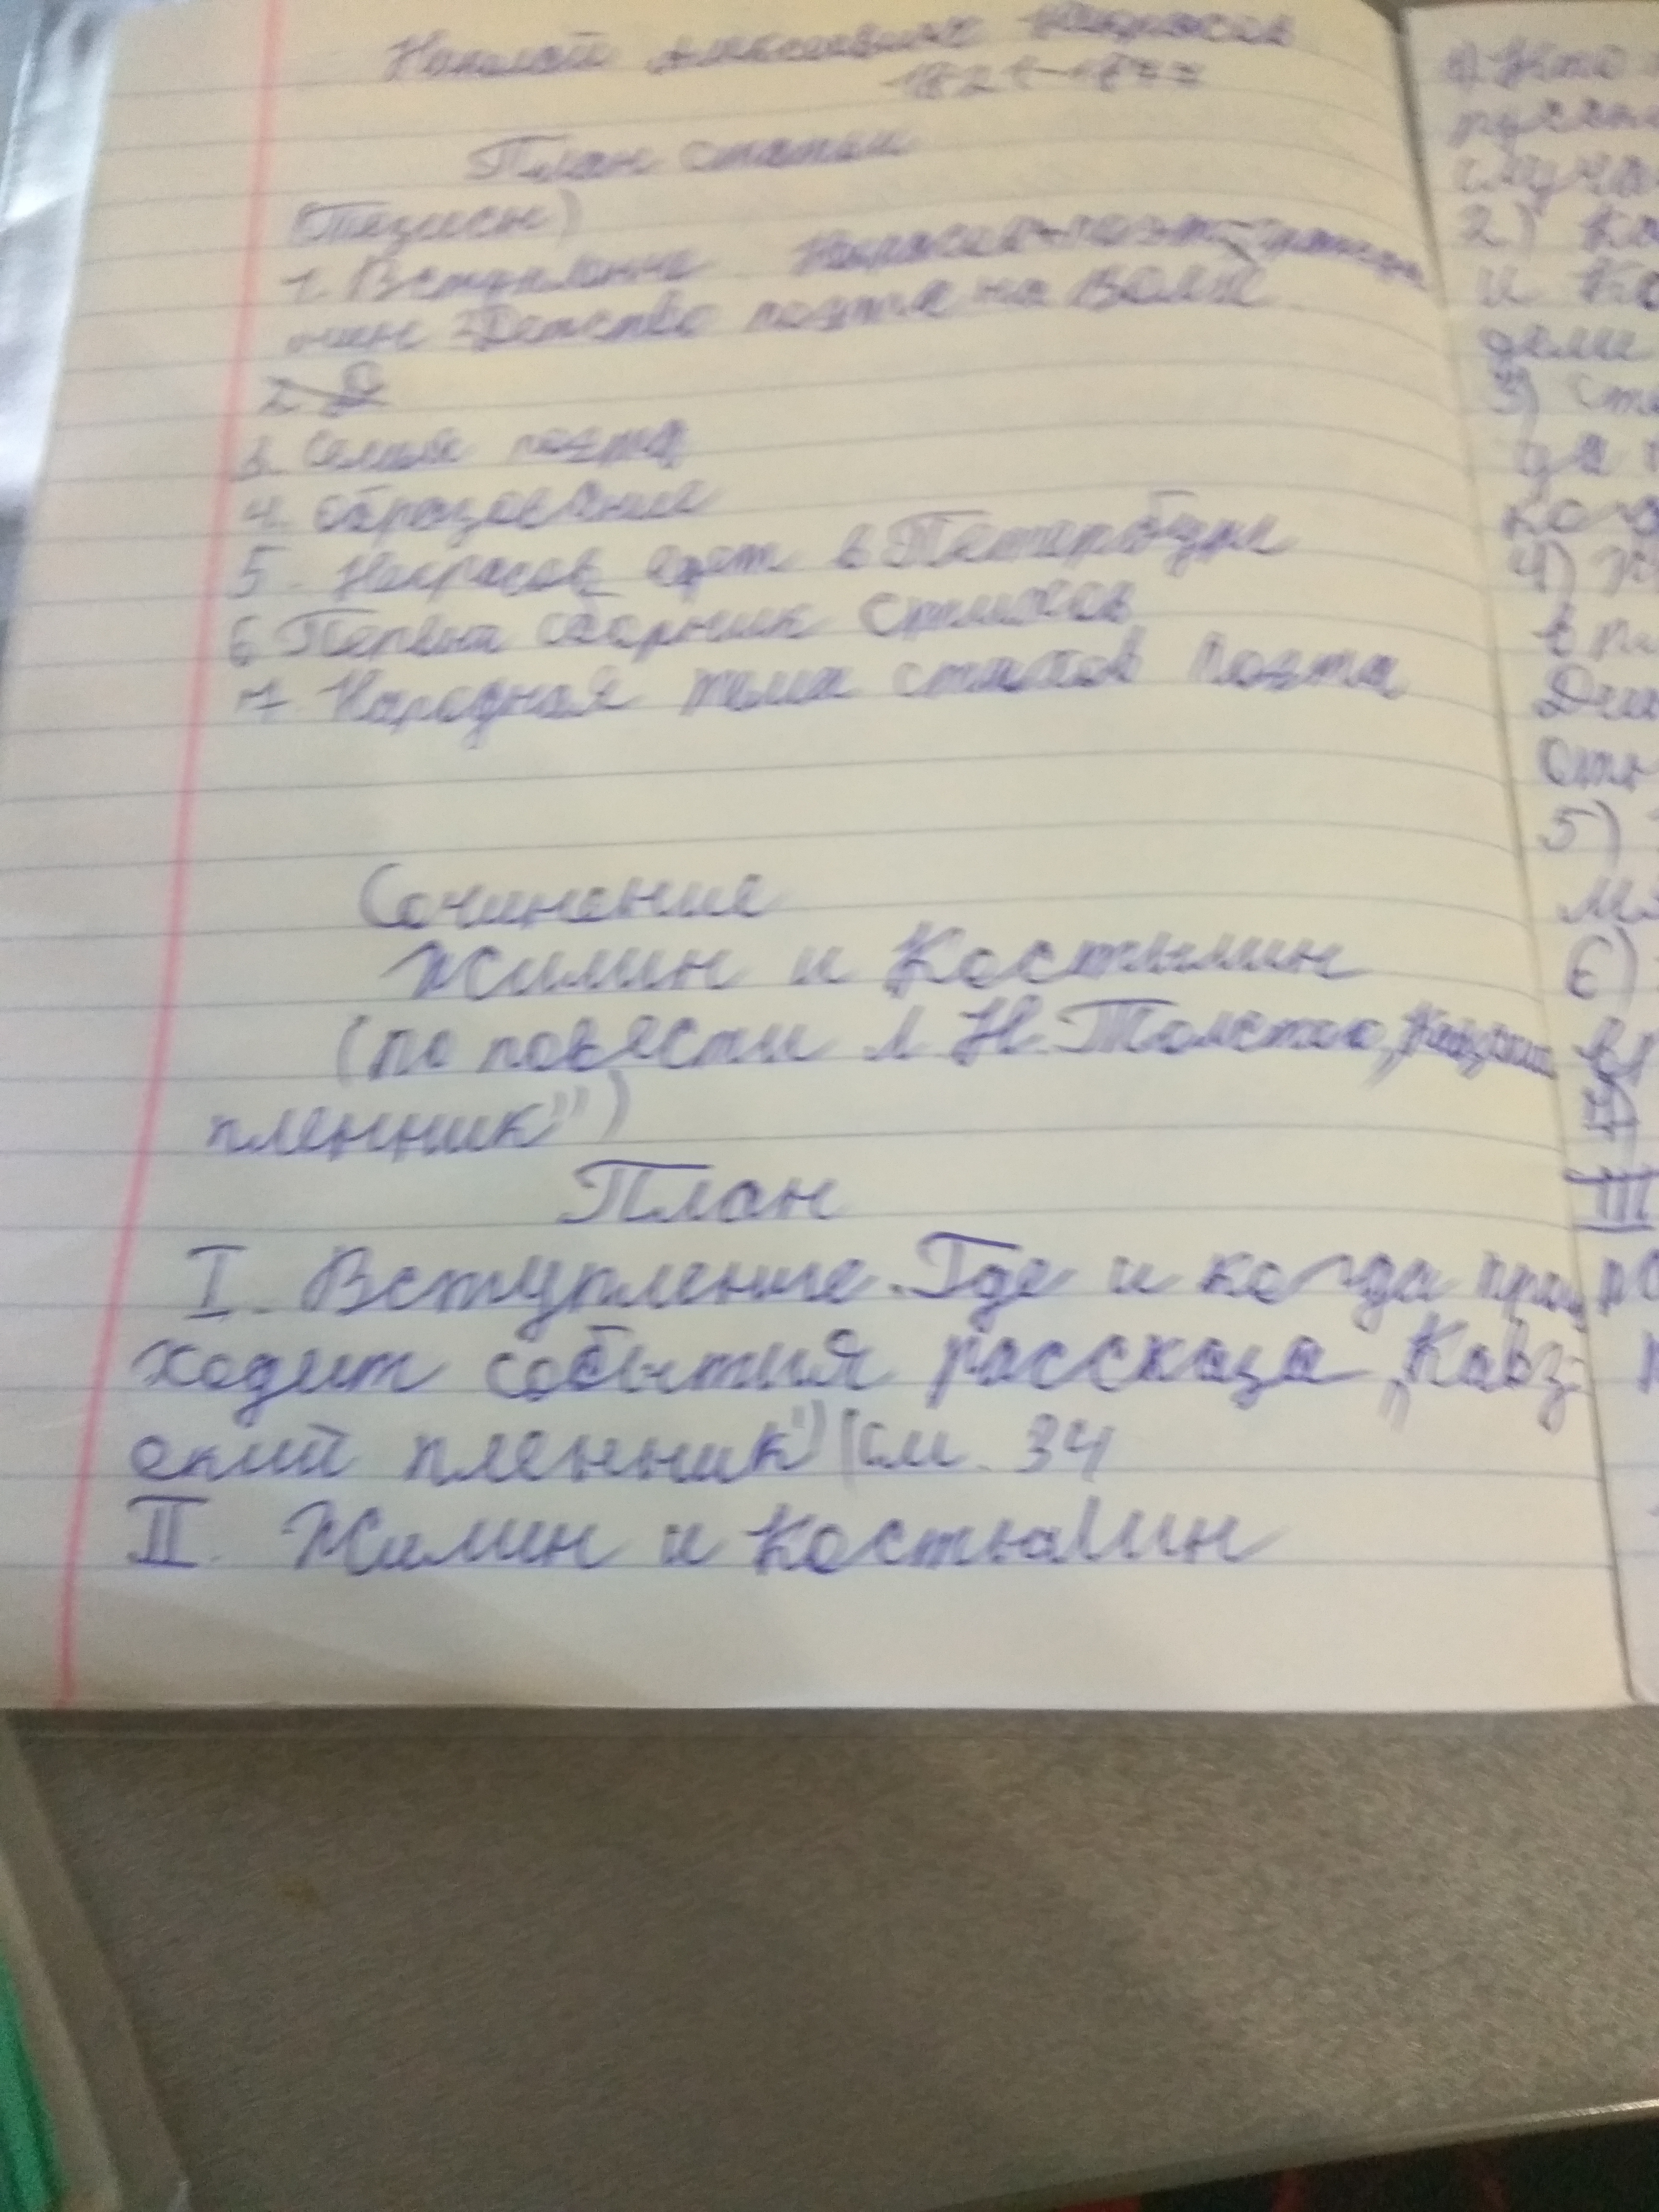 Николай Алексеевич Некрасов
1821-1877
План статьи
(Тезисы)
1. Вступление Некрасов-поэт-
Детство поэта на Волге
2. Д
3. Семья поэта
4. Образование
5. Некрасов едет в Петербург
6 Первы сборник стихов
7. Народная тема стихов поэта
Сочинение
Жилин и Костылин
(по повести Л. Н. Толстого „
пленник")
План
I. Вступление. Где и когда прои
ходит события рассказа „Кавз-
ский пленник") (см. 34
II. Жилин и Костылин
1) Кто
русск
случа
2) Ко
и Ко
дели
3) Ста
да
кога
4)
в пл
Дин
отн
5)
6)
7)
III